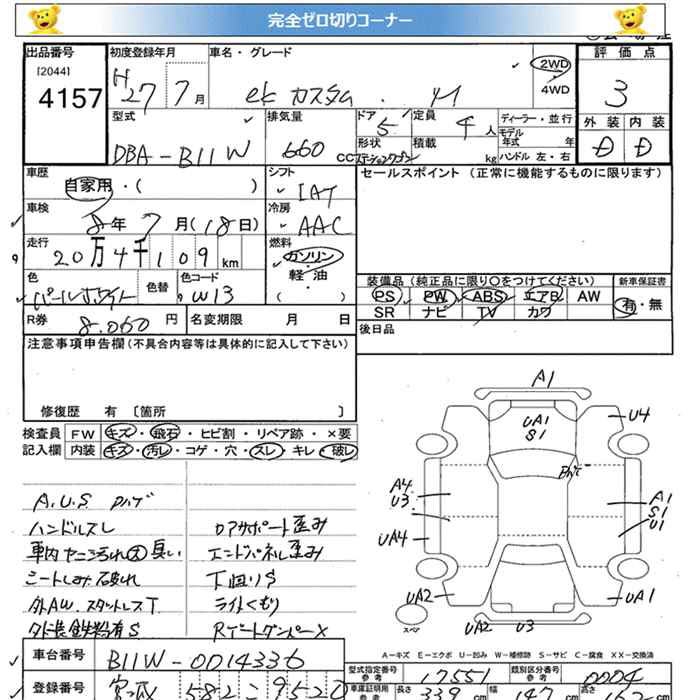 完全ゼロ切りコーナー
出品番号 初度登録年月 車名・グレード 評価点
[2044] 4157 H27 7月 eK カスタム . M 2WD 4WD 3
型式 排気量 ドア 5 定員 4人 ディーラー・並行 外装 内装
DBA-B11W 660CC 形状 ステーションワゴン 積載 kg モデル年式 年 ハンドル 左・右 D D
車歴 シフト セールスポイント (正常に機能するものに限ります)
自家用・( ) IAT
車検 冷房
8年7月(18日) AAC
走行 燃料
20万4千109km ガソリン
軽・油
( )
色 色替 色コード 装備品(純正品に限り○をつけてください) 新車保証書
パールホワイト W13 PS PW ABS エアB AW 有・無
SR ナビ TV カワ
R券 8.060円 名変期限 月 日 後日品
注意事項申告欄(不具合内容等は具体的に記入して下さい)
修復歴 有 〔箇所 〕
検査員 FW キズ・飛石・ヒビ割・リペア跡・×要
記入欄 内装 キズ・汚レ・コゲ・穴・スレ・キレ・破レ
A.U.S
ハンドルスレ ロアサポート歪み
車内ヤニ汚れ大 臭い エンドパネル歪み
シートしみ 破れ 下廻りS
外AW.スタットレスT ライトくもり
A1
U4
UA1
S1
A4
U3
A1
S1
U1
UA4
UA2
UA1
スペア
UA2 U3
A-キズ E-エクボ U-凹み W-補修跡 S-サビ C-腐食 XX-交換済
車台番号 B11W-0014336
型式指定番号 参考 17551 類別区分番号 参考 0004
登録番号 582 9520 車庫証明用 参考 長さ 339cm 幅 147cm 高さ